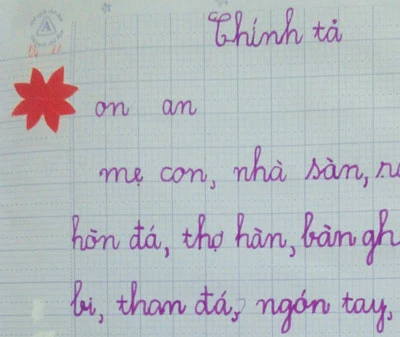 Chính tả
on an
mẹ con, nhà sàn,
hòn đá, thợ hàn, bàn gh
bi, than đá, ngón tay,